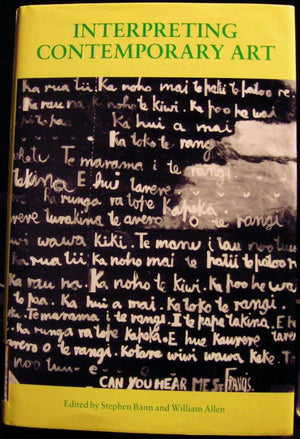 INTERPRETING
CONTEMPORARY ART
Ka rua tii. Ka noho mai te patii te patoo re.
Ka rau na. Ka noho te kiwi. Ka poo he wai
Ka hui a mai
Ka toko te rangi
Te marama i te rangi.
takina. E hui tarere
Ka runga ra tope Kapoka
rere turakina te arero o te rangi
wiwi wawa kiki. Te manu i tau noo
Ka rua tii. Ka noho mai te patii te patoo
Ka rau na. Ka noho te kiwi. Ka poo he wa
to pa. Ka hui a mai. Ka toko te rangi.
Te marama i te rangi. I te papa takina. E h
Ka runga ra tope Kapoka. E hue kaurere tare
arero o te rangi. Kotare wiwi wawa Keke. T
noo
CAN YOU HEAR ME St Francis.
Edited by Stephen Bann and William Allen